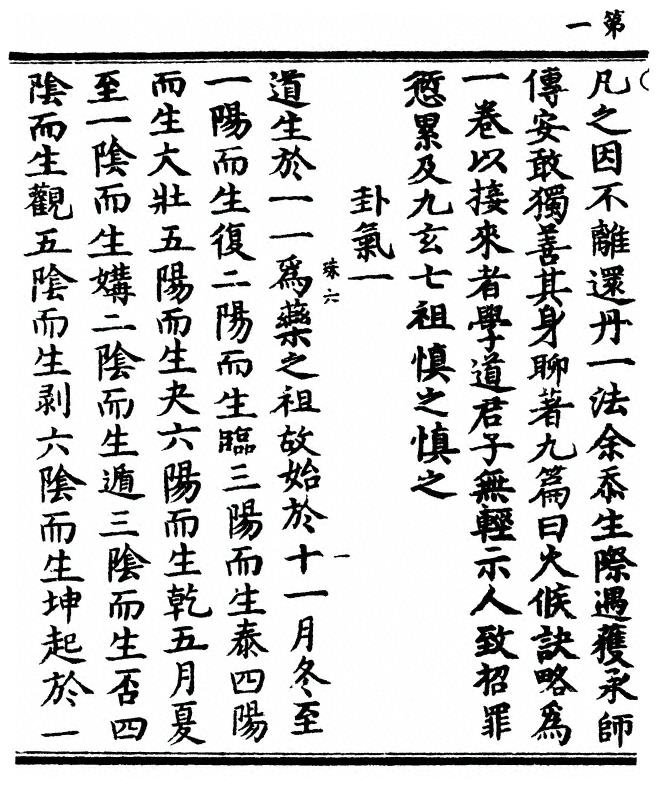 第一
凡之因不離還丹一法余忝生際遇獲承師
傳安敢獨善其身聊著九篇曰火候訣略為
一卷以接來者學道君子無輕示人致招罪
愆累及九玄七祖慎之慎之
卦氣一
珠六
道生於一一為藥之祖故始於十一月冬至
一陽而生復二陽而生臨三陽而生泰四陽
而生大壯五陽而生夬六陽而生乾五月夏
至一陰而生媾二陰而生遁三陰而生否四
陰而生觀五陰而生剥六陰而生坤起於一